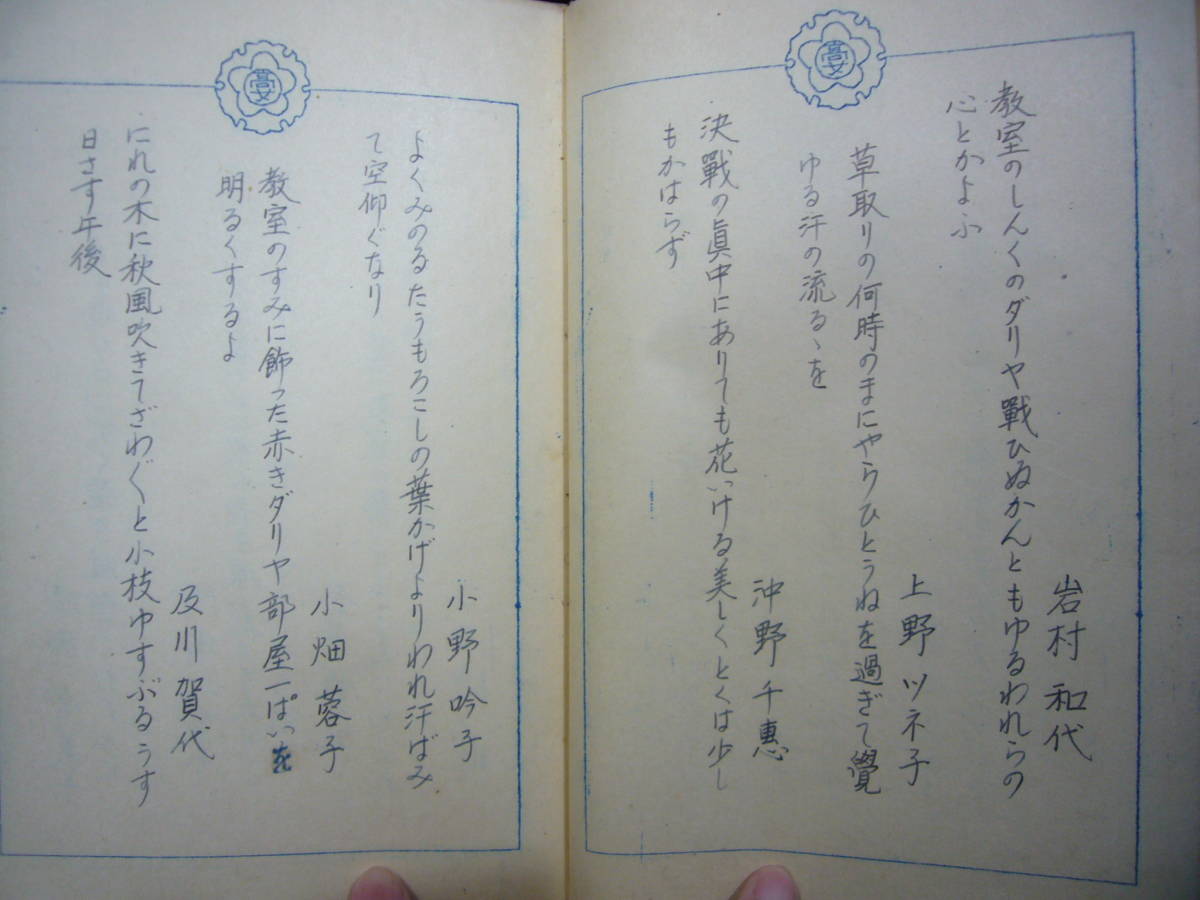 岩村和代
教室のしんくのダリヤ戰ひぬかんともゆるわれらの
心とかよふ
上野ツネ子
草取りの何時のまにやらひとうねを過ぎて覺
ゆる汗の流るゝを
沖野千惠
決戰の眞中にありても花いける美しくとくは少し
もかはらず
小野吟子
よくみのるたうもろこしの葉かげよりわれ汗ばみ
て空仰ぐなり
小畑蓉子
教室のすみに飾った赤きダリヤ部屋一ぱいを
明るくするよ
及川賀代
にれの木に秋風吹きてざわ〲と小枝ゆすぶるうす
日さす午後